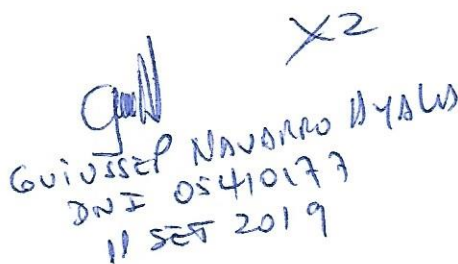 X2
GUIUSSEP NAVARRO AYALA
DNI 05410177
11 SET 2019